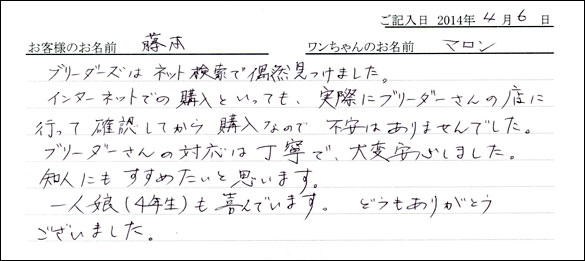 ご記入日 2014年 4月 6日
お客様のお名前 藤本 ワンちゃんのお名前 マロン
ブリーダーズは ネット検索で偶然見つけました。
インターネットでの購入といっても、実際にブリーダーさんの店に
行って確認してから購入なので 不安はありませんでした。
ブリーダーさんの対応は丁寧で、大変安心しました。
知人にもすすめたいと思います。
一人娘(4年生)も喜んでいます。 どうもありがとう
ございました。